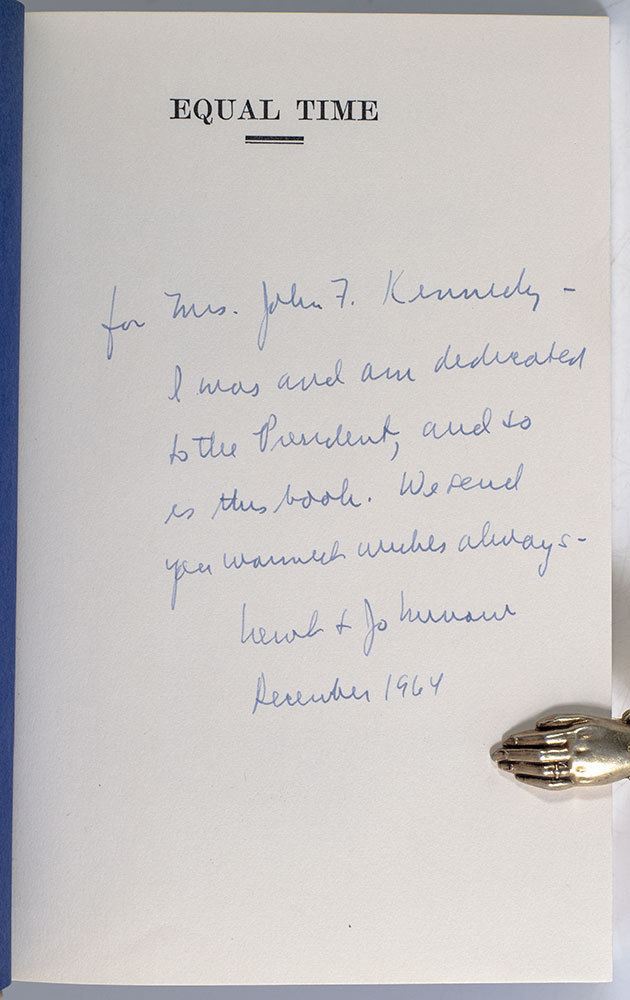 EQUAL TIME
for Mrs. John F. Kennedy –
I was and am dedicated
to the President, and so
is this book. We send
you warmest wishes always –
Newt & Jo Minow
December 1964